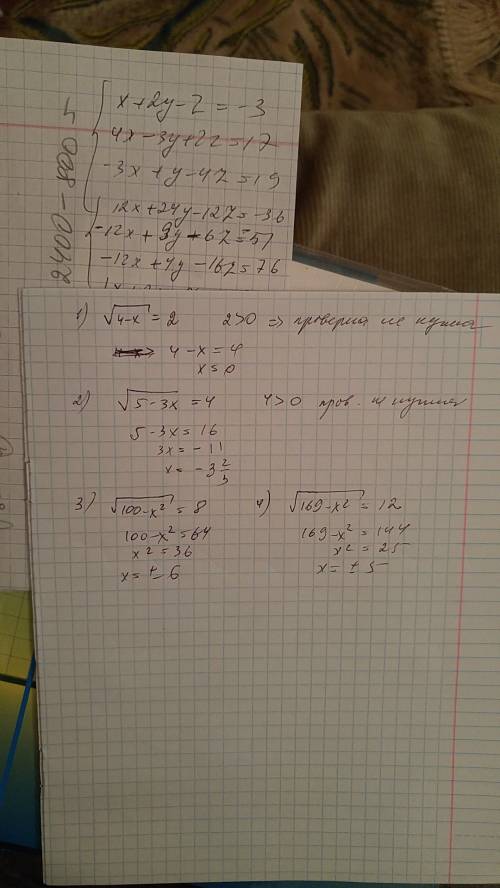 x+2y-z=-3
4x-3y+2z=17
-3x+y-4z=19
12x+24y-12z=-36
-12x+9y-6z=-51
-12x+4y-16z=76
1) √4-x = 2 2>0 => проверка не нужна
4-x=4
x=0
2) √5-3x = 4 4>0 пров. не нужна
5-3x=16
3x=-11
x=-3 2/3
3) √100-x² = 8
100-x²=64
x²=36
x=±6
4) √169-x² = 12
169-x²=144
x²=25
x=±5